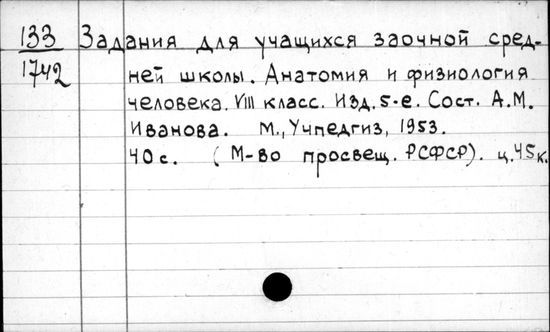 133 Задания для учащихся заочной сред-
1742 ней школы. Анатомия и физиология
человека. VIII класс. Изд. 5-е. Сост. А.М.
Иванова. М., Учпедгиз, 1953.
40 с. (М-во просвещ. РСФСР). ц. 45 к.